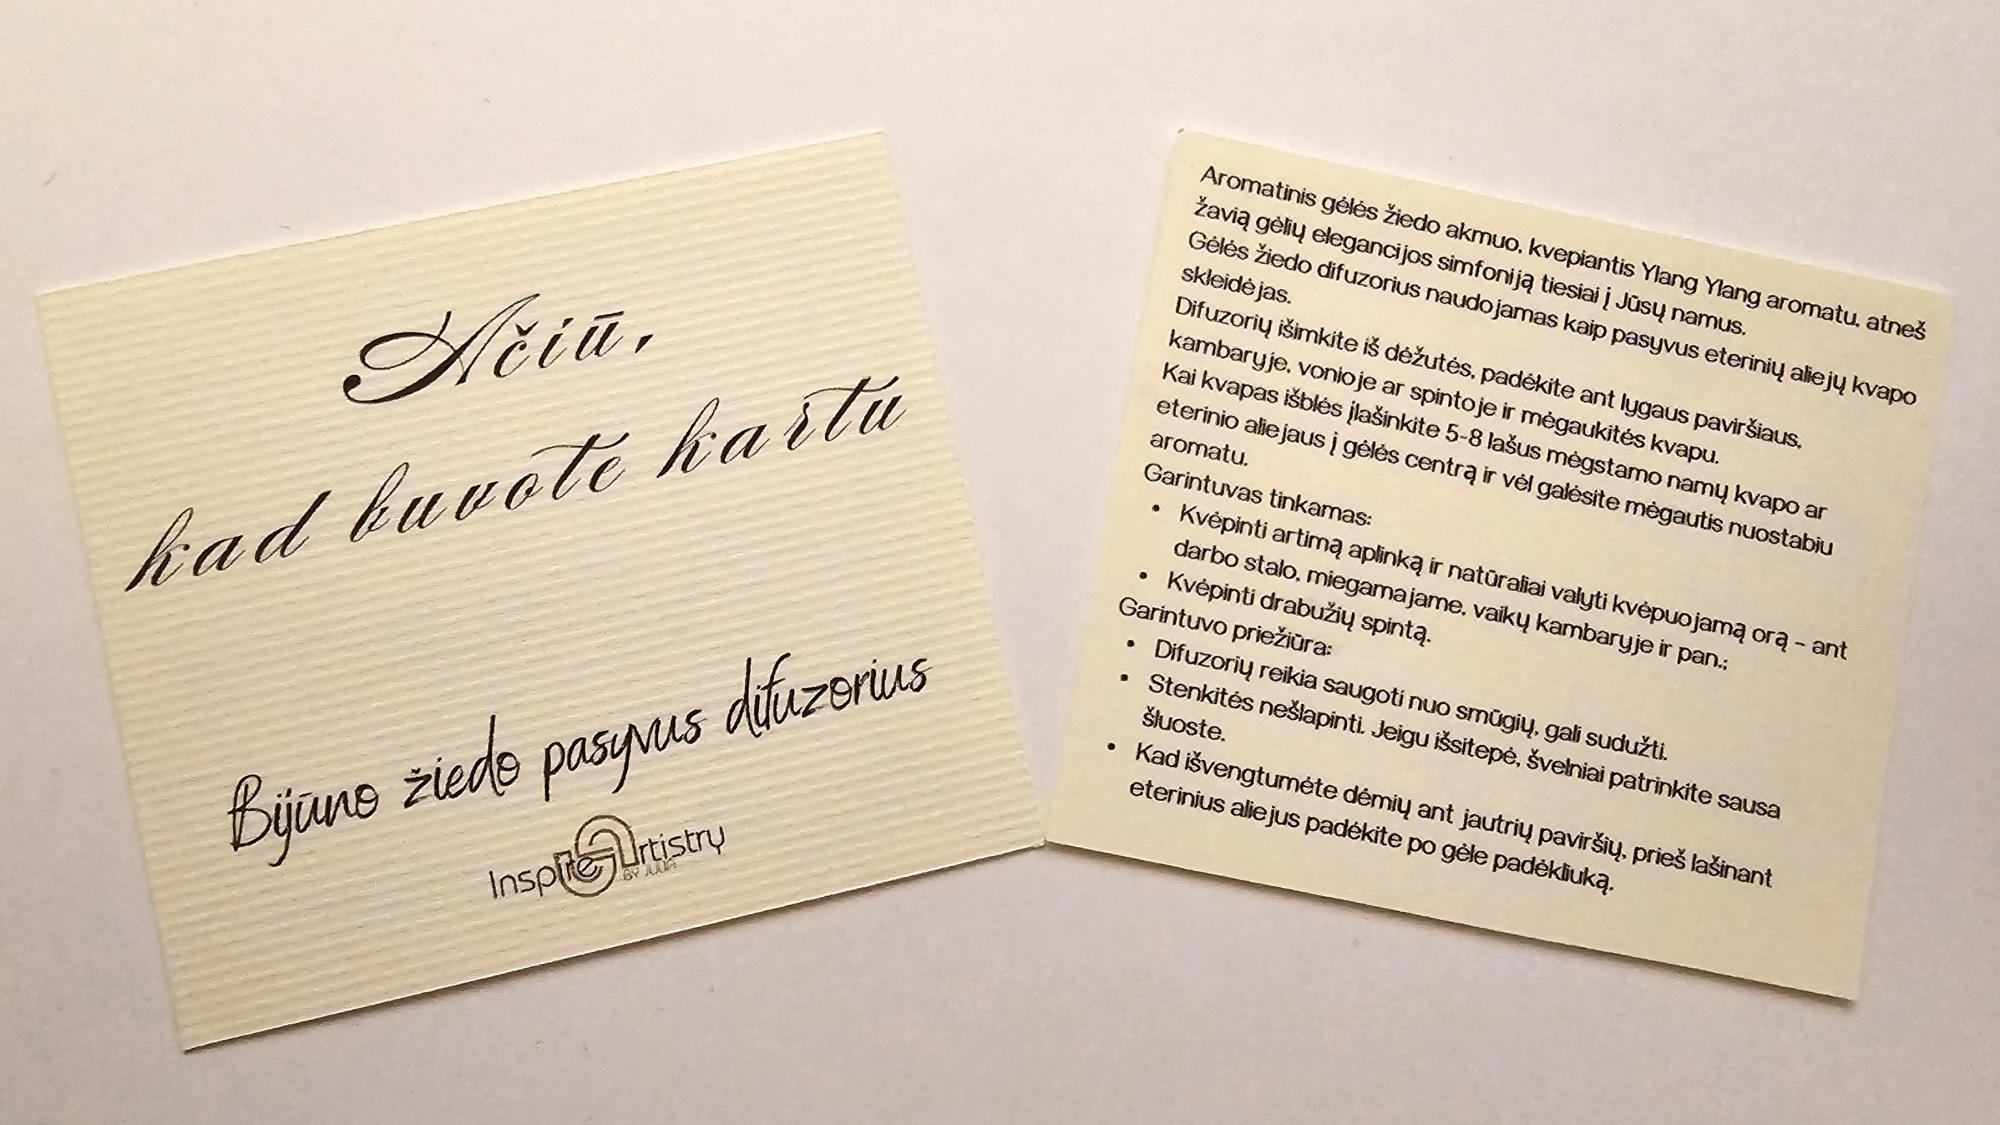 Ačiū,
kad buvote kartu
Bijūno žiedo pasyvus difuzorius
Inspire Artistry
BY JULIA
Aromatinis gėlės žiedo akmuo, kvepiantis Ylang Ylang aromatu, atneš
žavią gėlių elegancijos simfoniją tiesiai į Jūsų namus.
Gėlės žiedo difuzorius naudojamas kaip pasyvus eterinių aliejų kvapo
skleidėjas.
Difuzorių išimkite iš dėžutės, padėkite ant lygaus paviršiaus,
kambaryje, vonioje ar spintoje ir mėgaukitės kvapu.
Kai kvapas išblės įlašinkite 5-8 lašus mėgstamo namų kvapo ar
eterinio aliejaus į gėlės centrą ir vėl galėsite mėgautis nuostabiu
aromatu.
Garintuvas tinkamas:
• Kvėpinti artimą aplinką ir natūraliai valyti kvėpuojamą orą – ant
darbo stalo, miegamajame, vaikų kambaryje ir pan.;
• Kvėpinti drabužių spintą.
Garintuvo priežiūra:
• Difuzorių reikia saugoti nuo smūgių, gali sudužti.
• Stenkitės nešlapinti. Jeigu išsitepė, švelniai patrinkite sausa
šluoste.
• Kad išvengtumėte dėmių ant jautrių paviršių, prieš lašinant
eterinius aliejus padėkite po gėle padėkliuką.